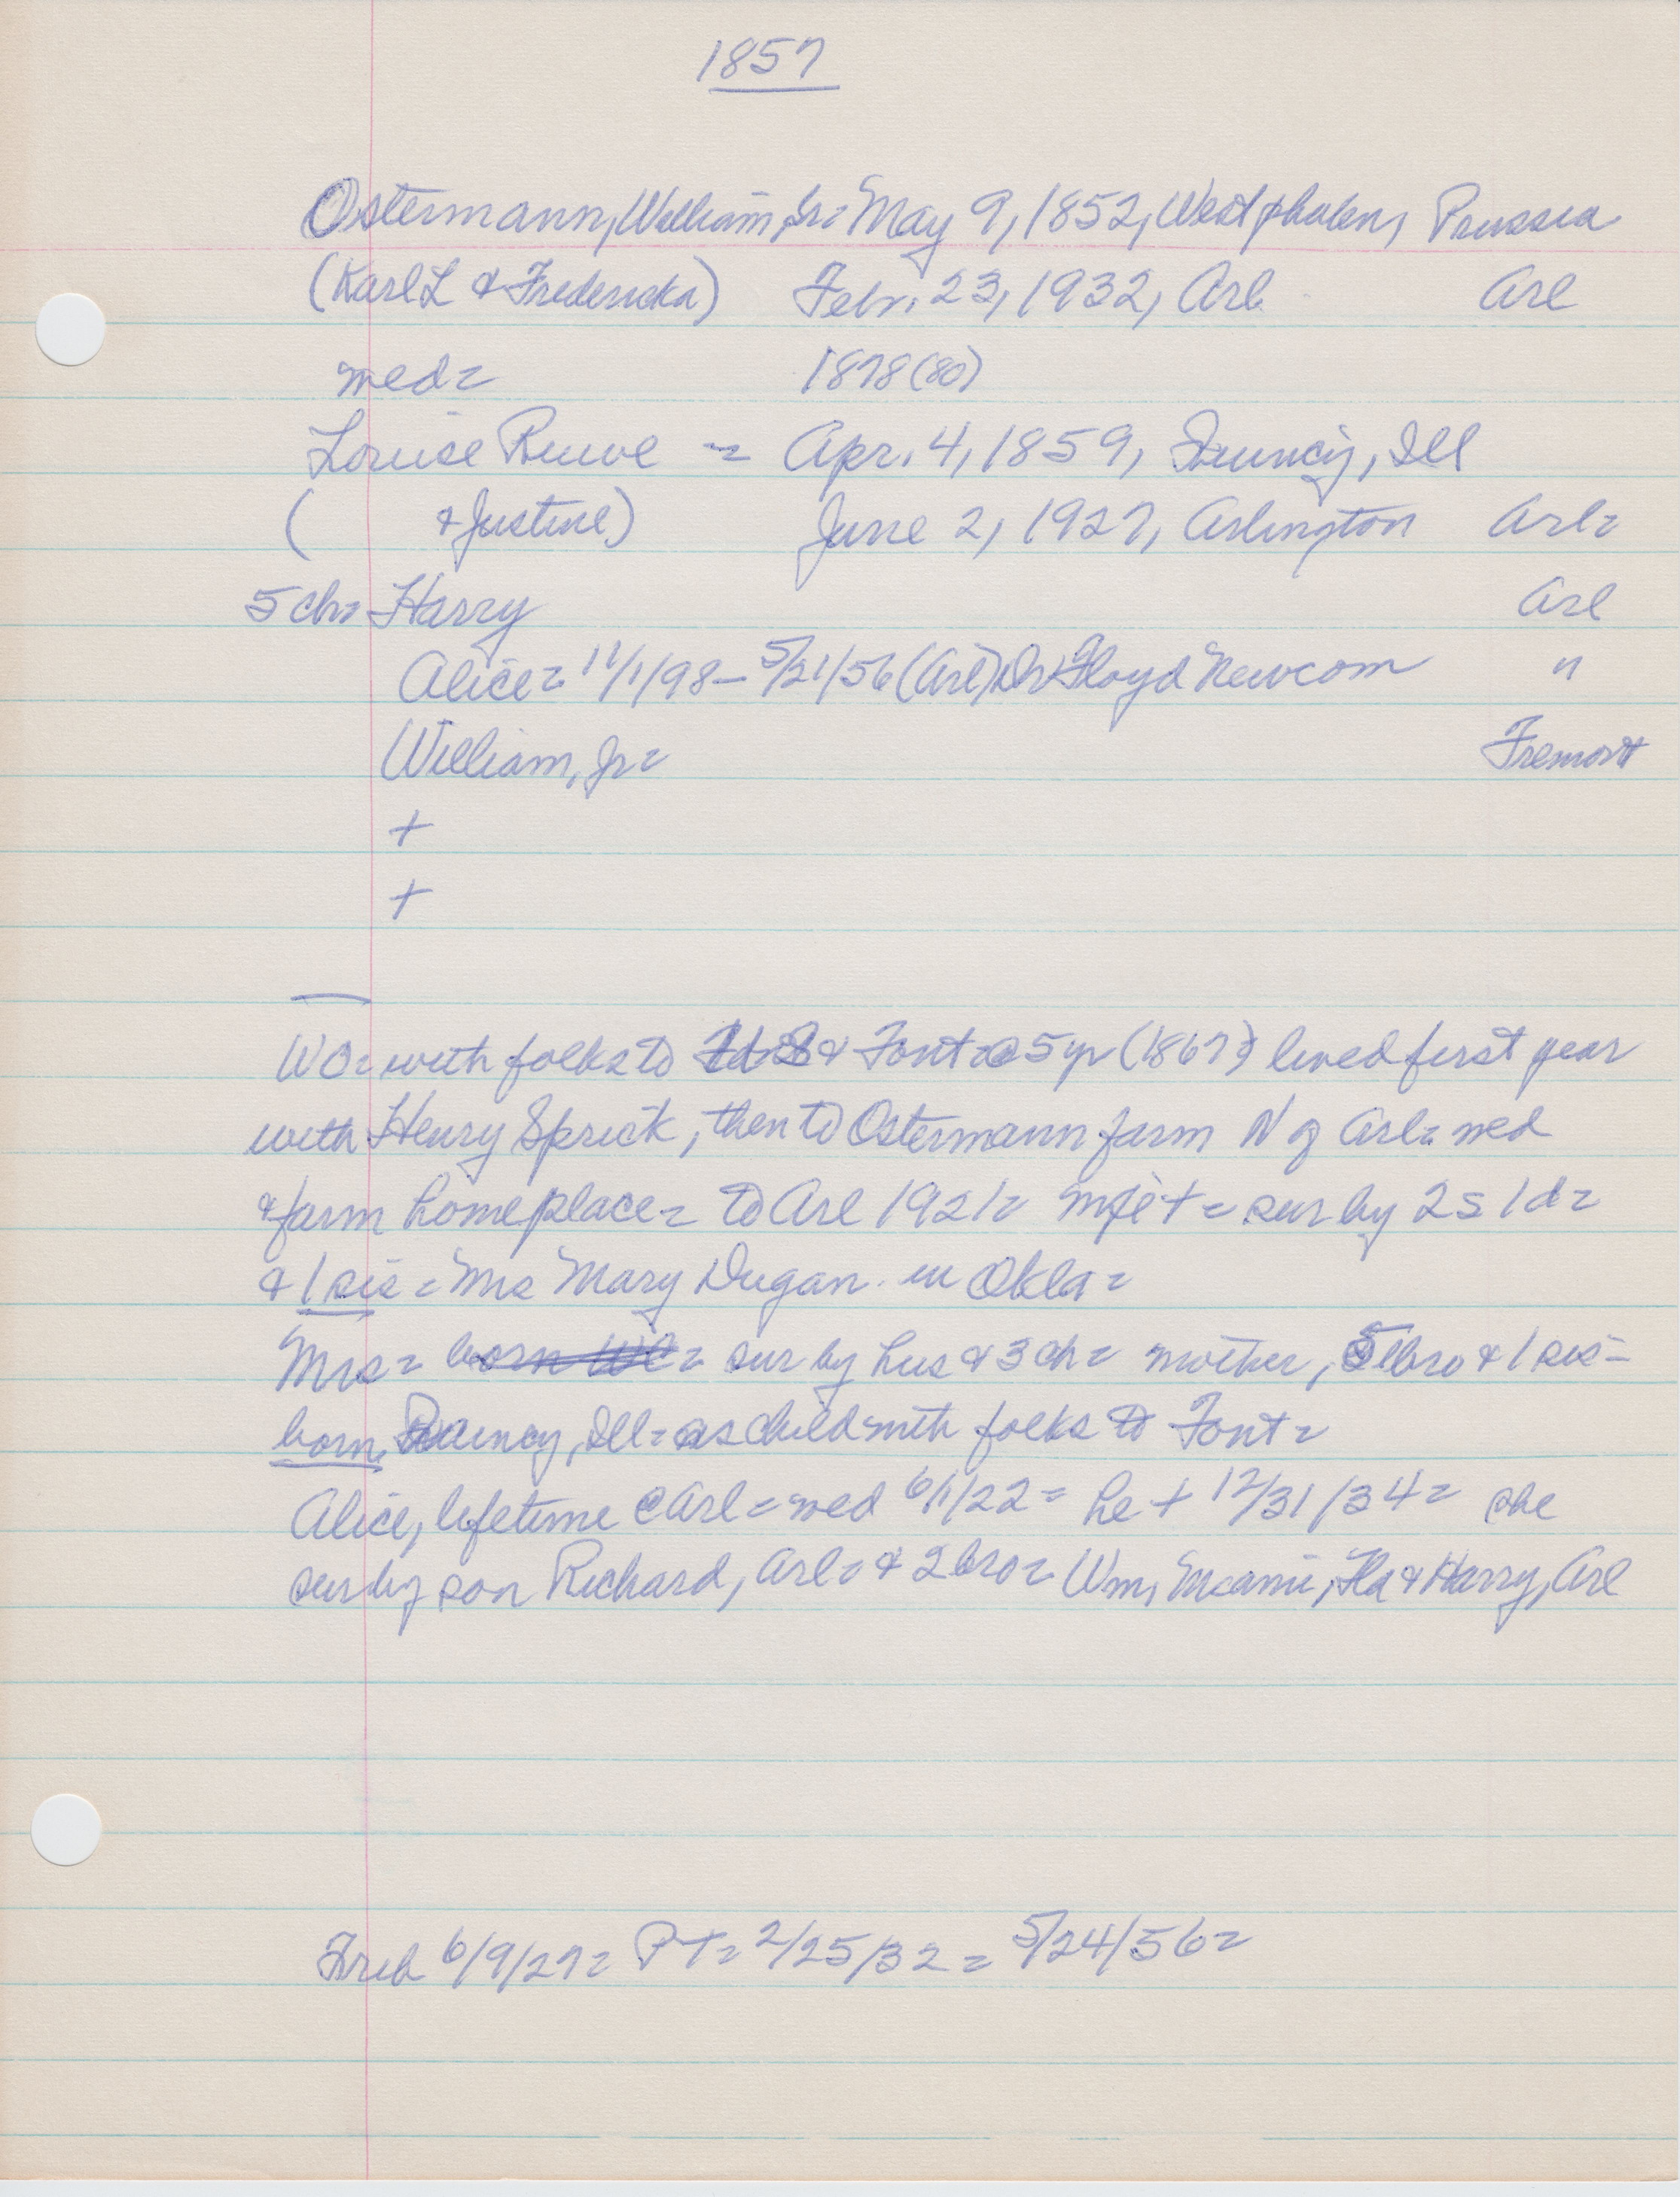 1857
Ostermann, William, Sr= May 9, 1852, Westphalen, Prussia
(Karl L & Fredericka) Febr. 23, 1932, Arl. Arl
med= 1878 (80)
Louise Ruwe = Apr. 4, 1859, Quincy, Ill
( & Justine) June 2, 1927, Arlington Arl=
5 ch= Harry Arl
Alice= 11/1/98 - 5/21/56 (Arl) Dr Floyd Newcom "
William, Jr= Fremont
+
+
WO= with folks to & Font= @ 5 yr (1867) lived first year
with Henry Sprick, then to Ostermann farm N of Arl= med
& farm home place= to Arl 1921= + = sur by 2s 1d=
& 1 sis = Mrs Mary Dugan. in Okla=
Mrs= born = sur by hus & 3 ch= mother, 5 bro & 1 sis-
born, Quincy, Ill= as child with folks to Font=
Alice, lifetime @ Arl= med 6/1/22= he + 12/31/34= she
sur by son Richard, Arl= & 2 bro= Wm, Miami, Fla & Harry, Arl
6/9/27= PT= 2/25/32= 5/24/56=